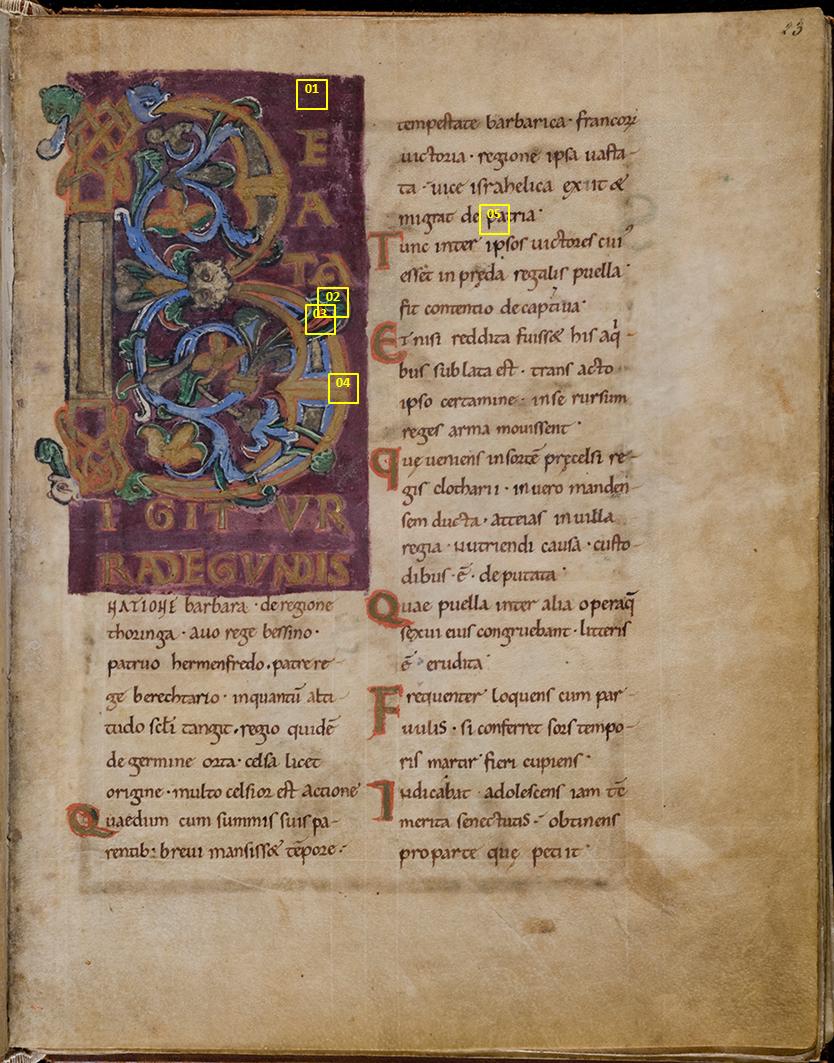 23
01
B
E
A
TA
02
03
04
IGITUR
RADEGUNDIS
NATIONE barbara · de regione
thoringa · auo rege bessino ·
patruo hermenfredo · patre re-
ge berechtario · inquantū alti
tudo scłi tangit · regio quidē
de germine orta · celsa licet
origine · multo celsior est actione ·
Quaedum cum summis suis pa-
rentib: breui mansiss& tēpore ·
tempestate barbarica · francorꝝ
uictoria · regione ipsa uasta-
ta · uice israhelica exiit &
migrat de patria ·
05
Tunc inter ipsos uictores cui᾽
esset in pręda regalis puella
fit contentio de captiua ·
Et nisi reddita fuiss& his aq̇-
bus sublata est · trans acto
ipso certamine · inse rursum
reges arma mouissent ·
Quę ueniens insortē pręcelsi re-
gis clotharii · in uero manden-
sem ducta · atteias in uilla
regia · nutriendi causa · custo-
dibus · ē · deputata ·
Quae puella inter alia operaq̄
sexui eius congruebant · litteris
ē · erudita ·
Frequenter loquens cum par-
uulis · si conferret sors tempo-
ris martir fieri cupiens ·
Iudicabat · adolescens iam tē
merita senectutis · obtinens
pro parte quę petiit ·